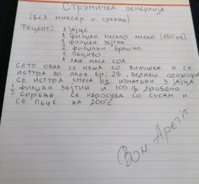 Струмичка пенерлија
(без миксер и сукање)
Рецепт: 1 јајце
1 филџан кисело млеко (180 мл)
1 филџан зејтин
2 филџани брашно
1 пециво
1 лаж. мала сол
Сето ова се меша со вилушка и се
истура во плех бр. 28, веднаш одозгора
се истура смеса од изматени 3 јајца
1/2 филџан зејтин и 100 гр. дробено
сирење. Се наросува со сусам и
се пече на 200°C
Бон Апетит